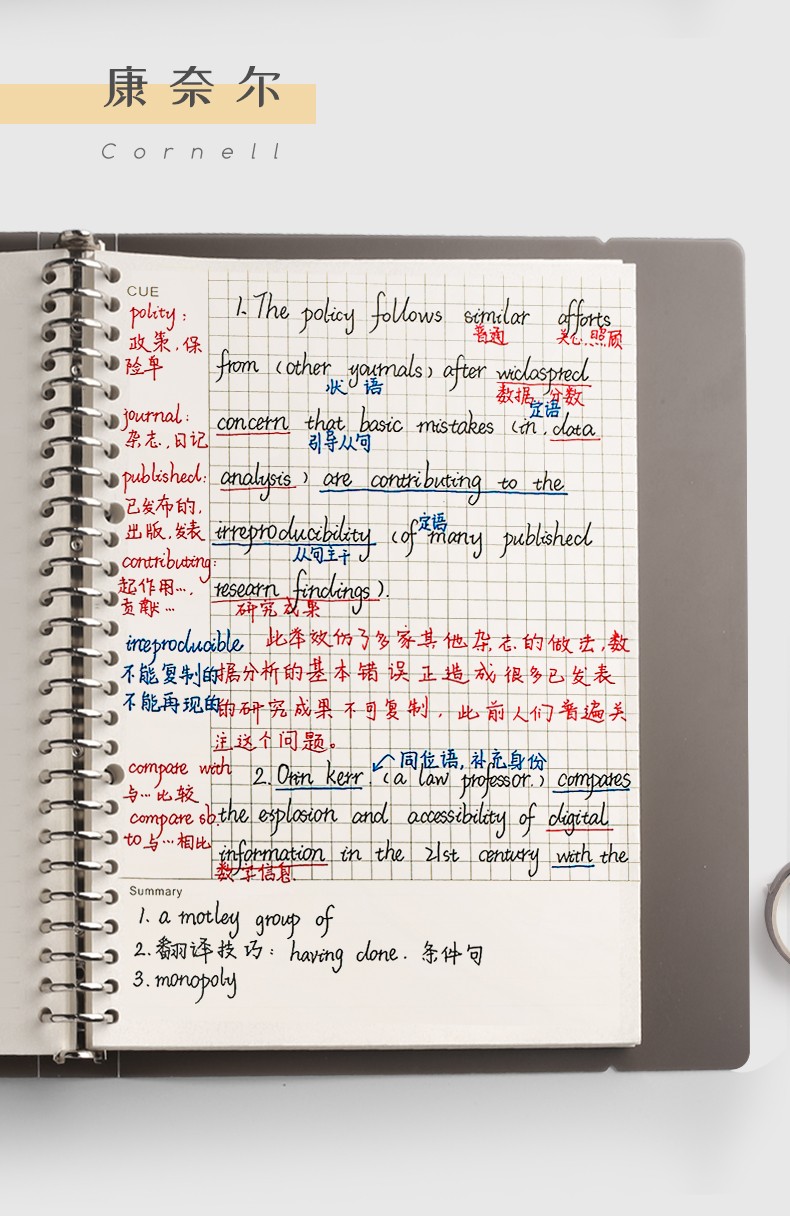 康奈尔
Cornell
CUE
polity:
政策,保
险单
journal:
杂志,日记
published:
已发布的,
出版,发表
contributing:
起作用…,
贡献…
irreproducible
不能复制的
不能再现的
compare with
与…比较
compare sb.
to 与…相比
1. The policy follows similar afforts
普通 关心.照顾
from (other yournals) after widaspred
状语 数据 分数
定语
concern that basic mistakes (in data
引导从句
analysis) are contributing to the
定语
irreproducibility (of many published
从句主干
researn findings).
研究成果
此举效仿了多家其他杂志的做法,数
据分析的基本错误正造成很多已发表
的研究成果不可复制,此前人们普遍关
注这个问题。
同位语,补充身份
2. Orin kerr (a law professor.) compares
the esplosion and accessibility of digital
information in the 21st century with the
数字信息
Summary
1. a motley group of
2. 翻译技巧: having done. 条件句
3. monopoly